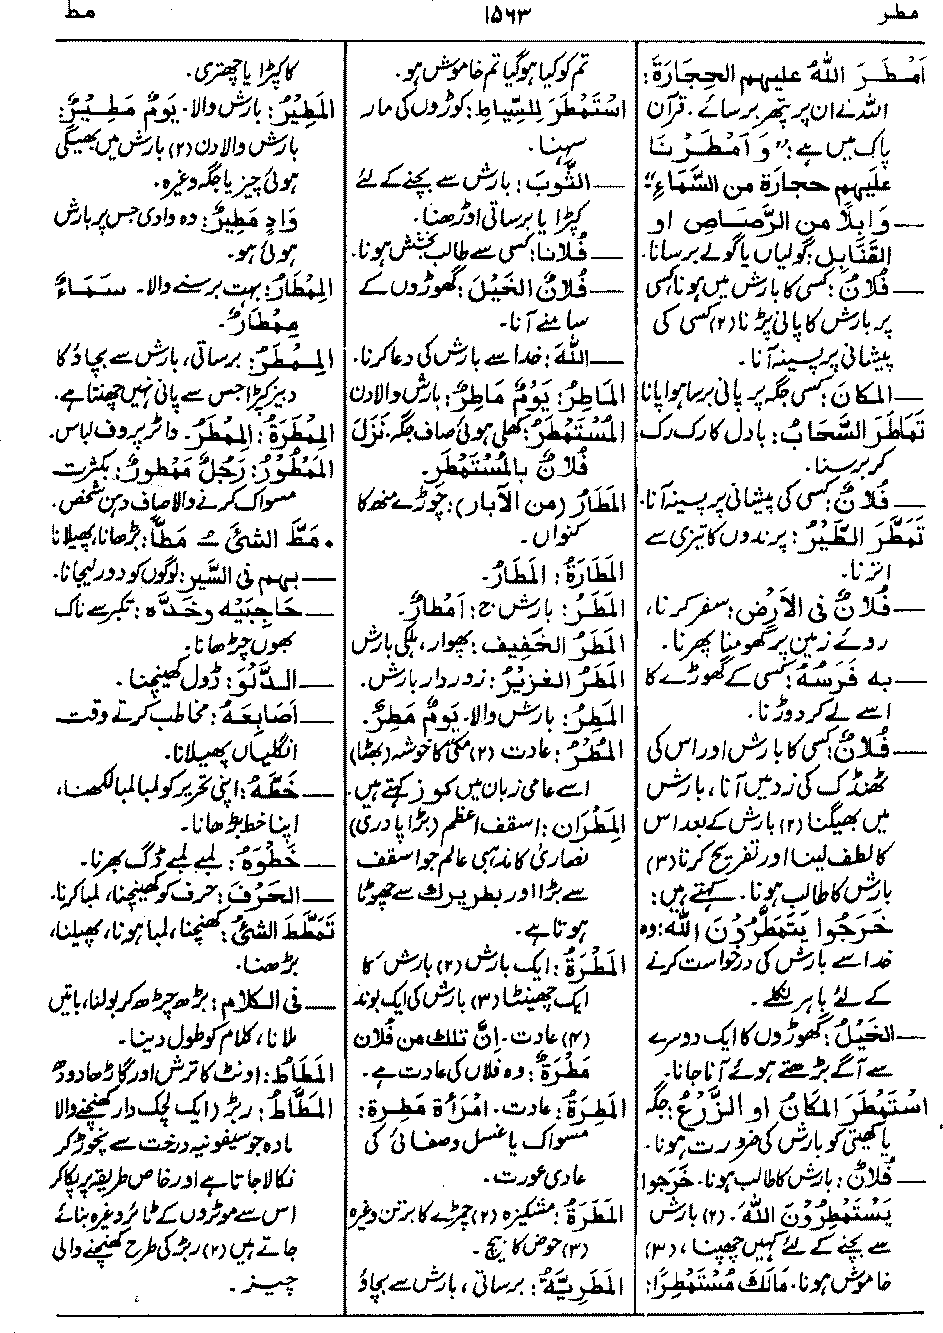 مطر
۱۵۶۳
مط
اَمْطَرَ اللهُ عليهم الحِجارَةَ:
اللہ نے ان پر پتھر برسائے۔ قرآن
پاک میں ہے: ”وَ اَمْطَرْنَا
علیهم حجارة من السَّمَاءِ“
— وَابِلًا من الرَّصَاصِ او
القَنَابِلِ: گولیاں یا گولے برسانا
— فُلَانٌ: کسی کا بارش میں ہونا، کسی
پر بارش کا پانی پڑنا (۲) کسی کی
پیشانی پر پسینہ آنا۔
— المكانَ: کسی جگہ پر پانی برسا ہوا پانا
تَمَاطَرَ السَّحَابُ: بادل کا رک رک
کر برسنا۔
— فُلَانٌ: کسی کی پیشانی پر پسینہ آنا۔
تَمَطَّرَ الطَّيْرُ: پرندوں کا تیزی سے
اترنا۔
— فُلَانٌ فى الاَرْضِ: سفر کرنا،
روئے زمین پر گھومنا پھرنا۔
— به فَرَسُهُ: کسی کے گھوڑے کا
اسے لے کر دوڑنا۔
— فُلَانٌ: کسی کا بارش اور اس کی
ٹھنڈک کی زد میں آنا، بارش
میں بھیگنا (۲) بارش کے بعد اس
کا لطف لینا اور تفریح کرنا (۳)
بارش کا طالب ہونا۔ کہتے ہیں:
خَرَجُوا يَتَمَطَّرُونَ اللهَ: وہ
خدا سے بارش کی درخواست کرنے
کے لئے باہر نکلے۔
— الخَيْلُ: گھوڑوں کا ایک دوسرے
سے آگے بڑھتے ہوئے آنا جانا۔
اسْتَمْطَرَ المكانُ او الزَّرْعُ: جگہ
یا کھیتی کو بارش کی ضرورت ہونا۔
— فُلَانٌ: بارش کا طالب ہونا۔ خَرَجوا
يَسْتَمْطِرُونَ اللهَ۔ (۲) بارش
سے بچنے کے لئے کہیں چھپنا، (۳)
خاموش ہونا۔ مَالَكَ مُسْتَمْطِرًا:
تم کو کیا ہو گیا تم خاموش ہو۔
اسْتَمْطَرَ لِلسِّيَاطِ: کوڑوں کی مار
سہنا۔
— الثَّوبَ: بارش سے بچنے کے لئے
کپڑا یا برساتی اوڑھنا۔
— فُلَانًا: کسی سے طالب بخشش ہونا۔
— فُلَانٌ الخَيْلَ: گھوڑوں کے
سامنے آنا۔
— اللهَ: خدا سے بارش کی دعا کرنا۔
المَاطِرُ: يَوْمٌ مَاطِرٌ: بارش والا دن
المُسْتَمْطَرُ: کھلی ہوئی صاف جگہ۔ نَزَلَ
فُلَانٌ بِالمُسْتَمْطَرِ۔
المَطَارُ (من الآبار): چوڑے منھ کا
کنواں۔
المَطَارَةُ: المَطَارُ۔
المَطَرُ: بارش ج: اَمْطارٌ۔
المَطَرُ الخَفِيفُ: پھوار، ہلکی بارش
المَطَرُ الغَزِيرُ: زوردار بارش۔
المَطِرُ: بارش والا۔ يَوْمٌ مَطِرٌ۔
المُطْرُ: عادت (۲) مکئی کا خوشہ (بھٹا)
اسے عامی زبان میں کوز کہتے ہیں۔
المَطْرَان: اسقف اعظم (بڑا پادری)
نصاریٰ کا مذہبی عالم جو اسقف
سے بڑا اور بطریرک سے چھوٹا
ہوتا ہے۔
المَطْرَةُ: ایک بارش (۲) بارش کا
ایک چھینٹا (۳) بارش کی ایک بوند
(۴) عادت۔ اِنَّ تلك من فُلَان
مَطْرَةٌ: وہ فلاں کی عادت ہے۔
المَطِرَةُ: عادت۔ امْرَأَة مَطِرَة:
مسواک یا غسل و صفائی کی
عادی عورت۔
المَطَرَةُ: مشکیزہ (۲) چمڑے کا برتن وغیرہ
(۳) حوض کا بیچ۔
المَطَرِيَّةُ: برساتی، بارش سے بچاؤ
کا کپڑا یا چھتری۔
المَطِيْرُ: بارش والا۔ يَوْمٌ مَطِيْرٌ:
بارش والا دن (۲) بارش میں بھیگی
ہوئی چیز یا جگہ وغیرہ۔
وَادٍ مَطِيرٌ: وہ وادی جس پر بارش
ہوئی ہو۔
المِمْطَارُ: بہت برسنے والا۔ سَمَاءٌ
مِمْطَارٌ۔
المِمْطَرُ: برساتی، بارش سے بچاؤ کا
دبیز کپڑا جس سے پانی نہیں چھنتا ہے۔
المِمْطَرَةُ: المِمْطَرُ۔ واٹر پروف لباس۔
المَمْطُوْرُ: رَجُلٌ مَمْطورٌ: بکثرت
مسواک کرنے والا صاف دہن شخص۔
• مَطَّ الشئَ ـُ مَطًّا: بڑھانا، پھیلانا
— بهم فى السَّير: لوگوں کو دور لیجانا۔
— حَاجِبَيْه وخَدَّه: تکبر سے ناک
بھوں چڑھانا۔
— الدَّلْوَ: ڈول کھینچنا۔
— اَصَابِعَهُ: مخاطب کرتے وقت
انگلیاں پھیلانا۔
— خَطَّهُ: اپنی تحریر کو لمبا لمبا لکھنا،
اپنا خط بڑھانا۔
— خَطْوَهُ: لمبے لمبے ڈگ بھرنا۔
— الحَرْفَ: حرف کو کھینچنا، لمبا کرنا۔
تَمَطَّطَ الشئُ: کھنچنا، لمبا ہونا، پھیلنا،
بڑھنا۔
— فى الكلام: بڑھ چڑھ کر بولنا، باتیں
ملانا، کلام کو طول دینا۔
المَطَاطُ: اونٹ کا ترش اور گاڑھا دودھ
المَطَّاطُ: ربڑ (ایک لچک دار کھنچنے والا
مادہ جو سیفونیہ درخت سے نچوڑ کر
نکالا جاتا ہے اور خاص طریقہ پر پکا کر
اس سے موٹروں کے ٹائر وغیرہ بنائے
جاتے ہیں (۲) ربڑ کی طرح کھنچنے والی
چیز۔